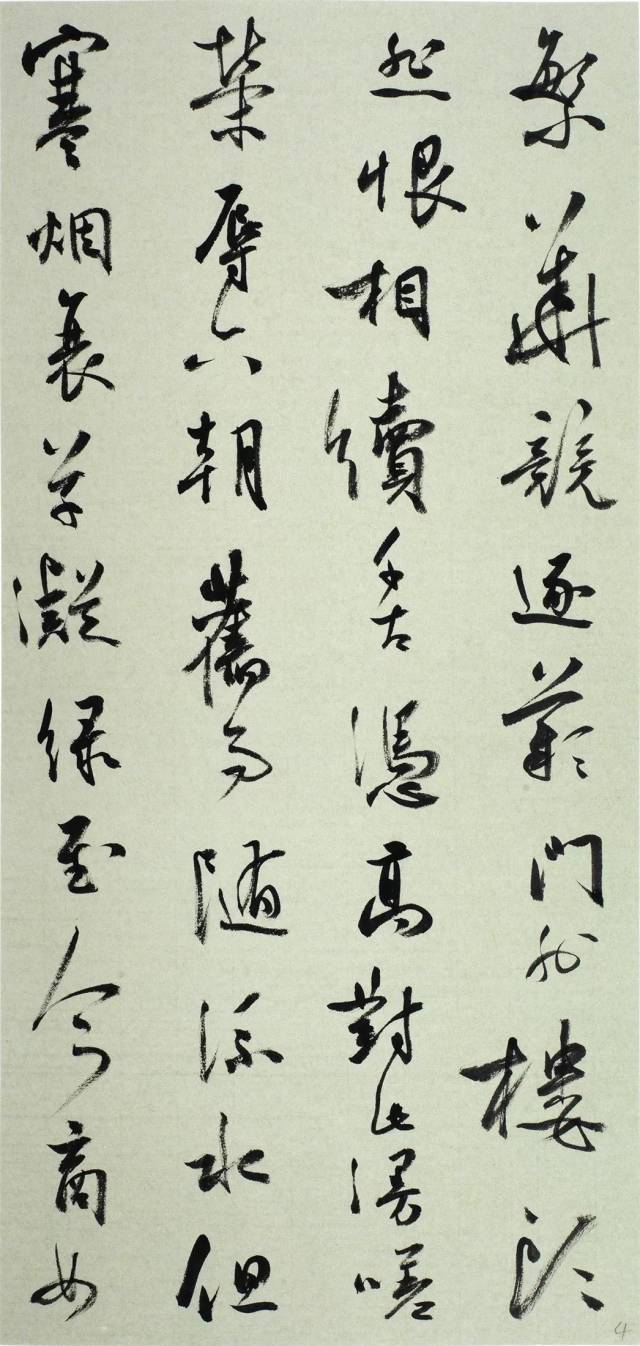 繁華競逐歎門外樓頭
悲恨相續千古憑高對此漫嗟
榮辱六朝舊事隨流水但
寒烟衰草凝緑至今商女
4